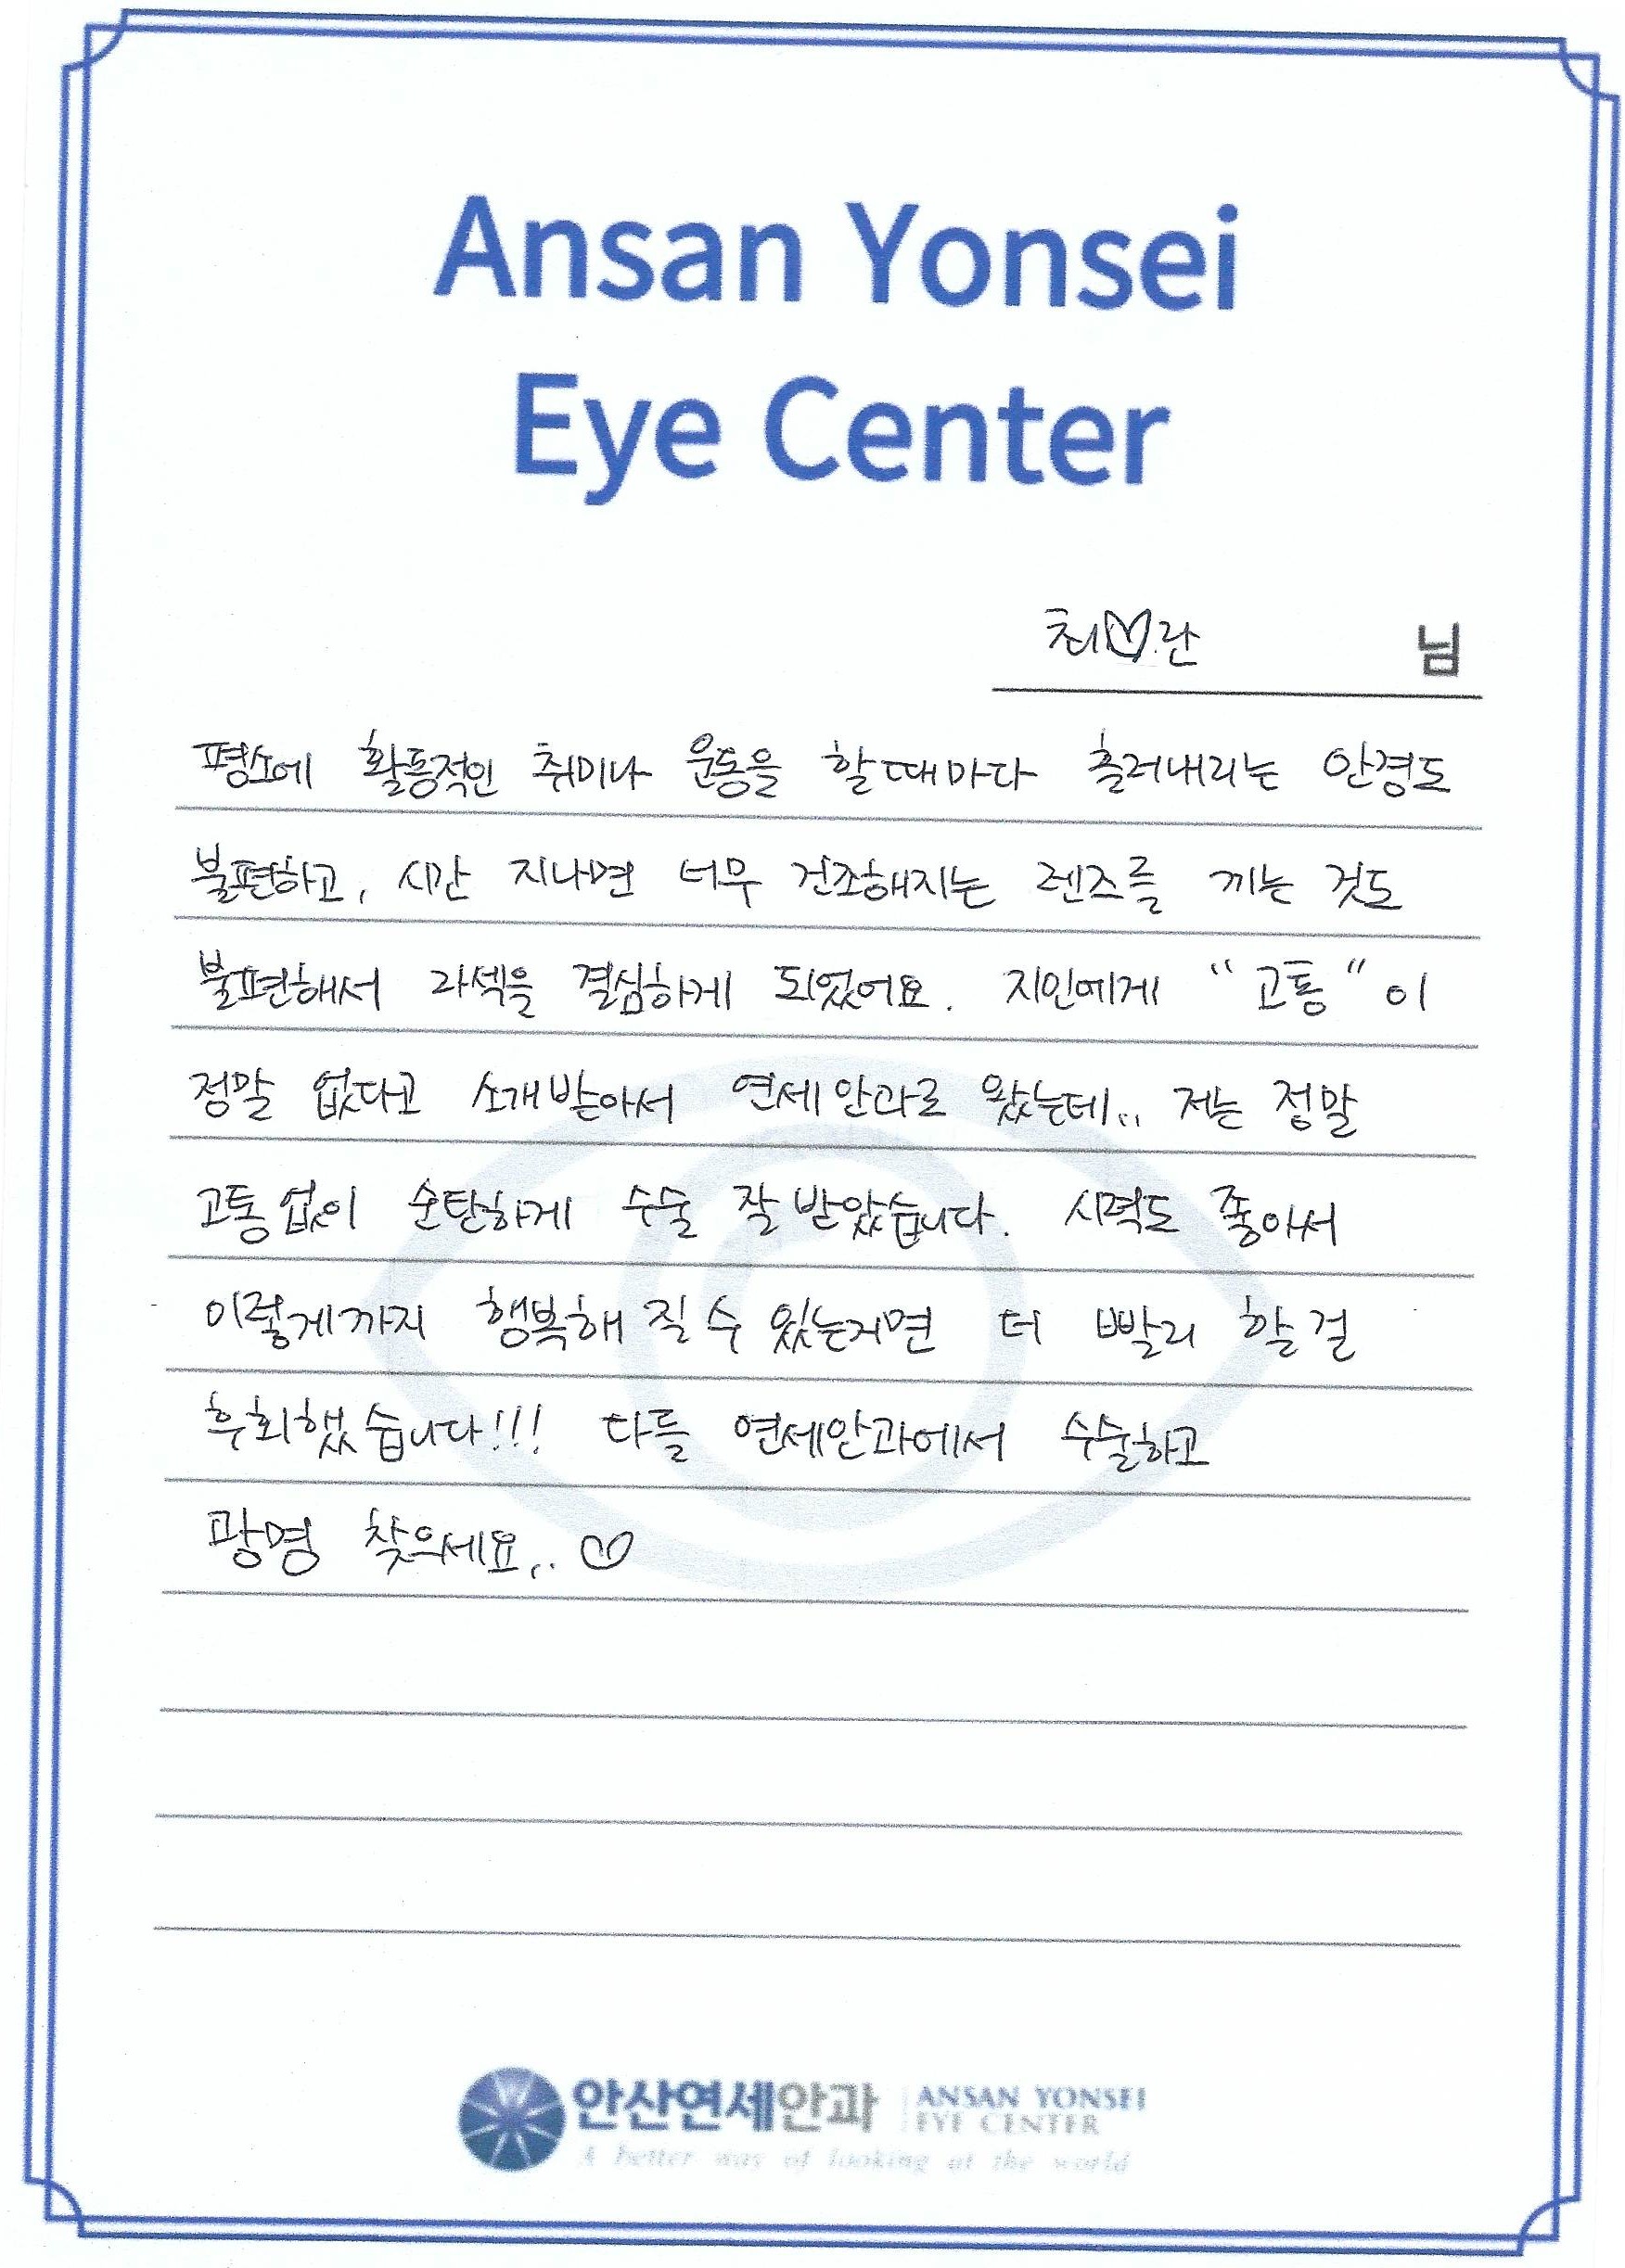 Ansan Yonsei
Eye Center
최♡란 님
평소에 활동적인 취미나 운동을 할때마다 흘러내리는 안경도
불편하고, 시간 지나면 너무 건조해지는 렌즈를 끼는 것도
불편해서 라섹을 결심하게 되었어요. 지인에게 "고통"이
정말 없다고 소개받아서 연세안과로 왔는데.. 저는 정말
고통없이 순탄하게 수술 잘 받았습니다. 시력도 좋아서
이렇게까지 행복해 질 수 있는거면 더 빨리 할 걸
후회했습니다!!! 다들 연세안과에서 수술하고
광명 찾으세요.. ♡
안산연세안과 ANSAN YONSEI
EYE CENTER
A better way of looking at the world